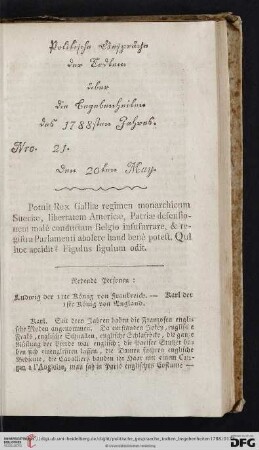 Politische Gespräche
der Todten
über
die Begebenheiten
des 1788sten Jahres.
Nro. 21.
Den 20ten May.
Potuit Rex Galliæ regimen monarchicum
Sueciæ, libertatem Americæ, Patriæ defensio-
nem malè conductam Belgio insusurrare, &
Parlamenti abolere haud benè potest. Qui
hoc accidit? Figulus figulum odit.
Redende Personen:
Ludwig der 11te König von Frankreich. — Karl der
1ste König von England.
Karl. Seit dem Jahren haben die Franzosen englis
sche Moden angenommen. Da verstanden Jokey, englische
Fraks, englische Schnallen, englische Schlafröcke, die ganze
Kleidung der Pferde war englisch; die Pariser Stutzer ha-
ben sich
Bediente, die Cavaliers, die hatten im Haar ein einen
à l'Anglaise, man sah in Paris englisches Costume —